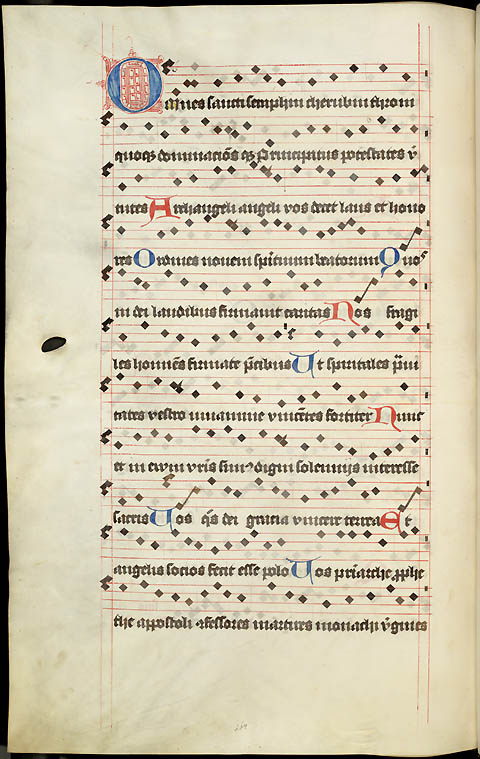 Omnes sancti seraphin cherubin throni
quoqȝ dominacōes qȝ Principatus potestates v̄
tutes Archangeli angeli vos decet laus et hono
res Ordines noveni spūtuum beatorum Quos
in dei laudibus firmavit caritas Nos fragi
les homines firmate p̄cibus Ut spiritales p̄vi
tates vestro iuvamine vincētes fortiter Nunc
et in evum vr̄is simꝰ digni solennijs interesse
sacris Vos qͦs dei gracia vincere terrea Et
angelis socios fecit esse polo Vos pr̄iarche ꝓphe
the appostoli ꝯfessores martires monachi v̓gines